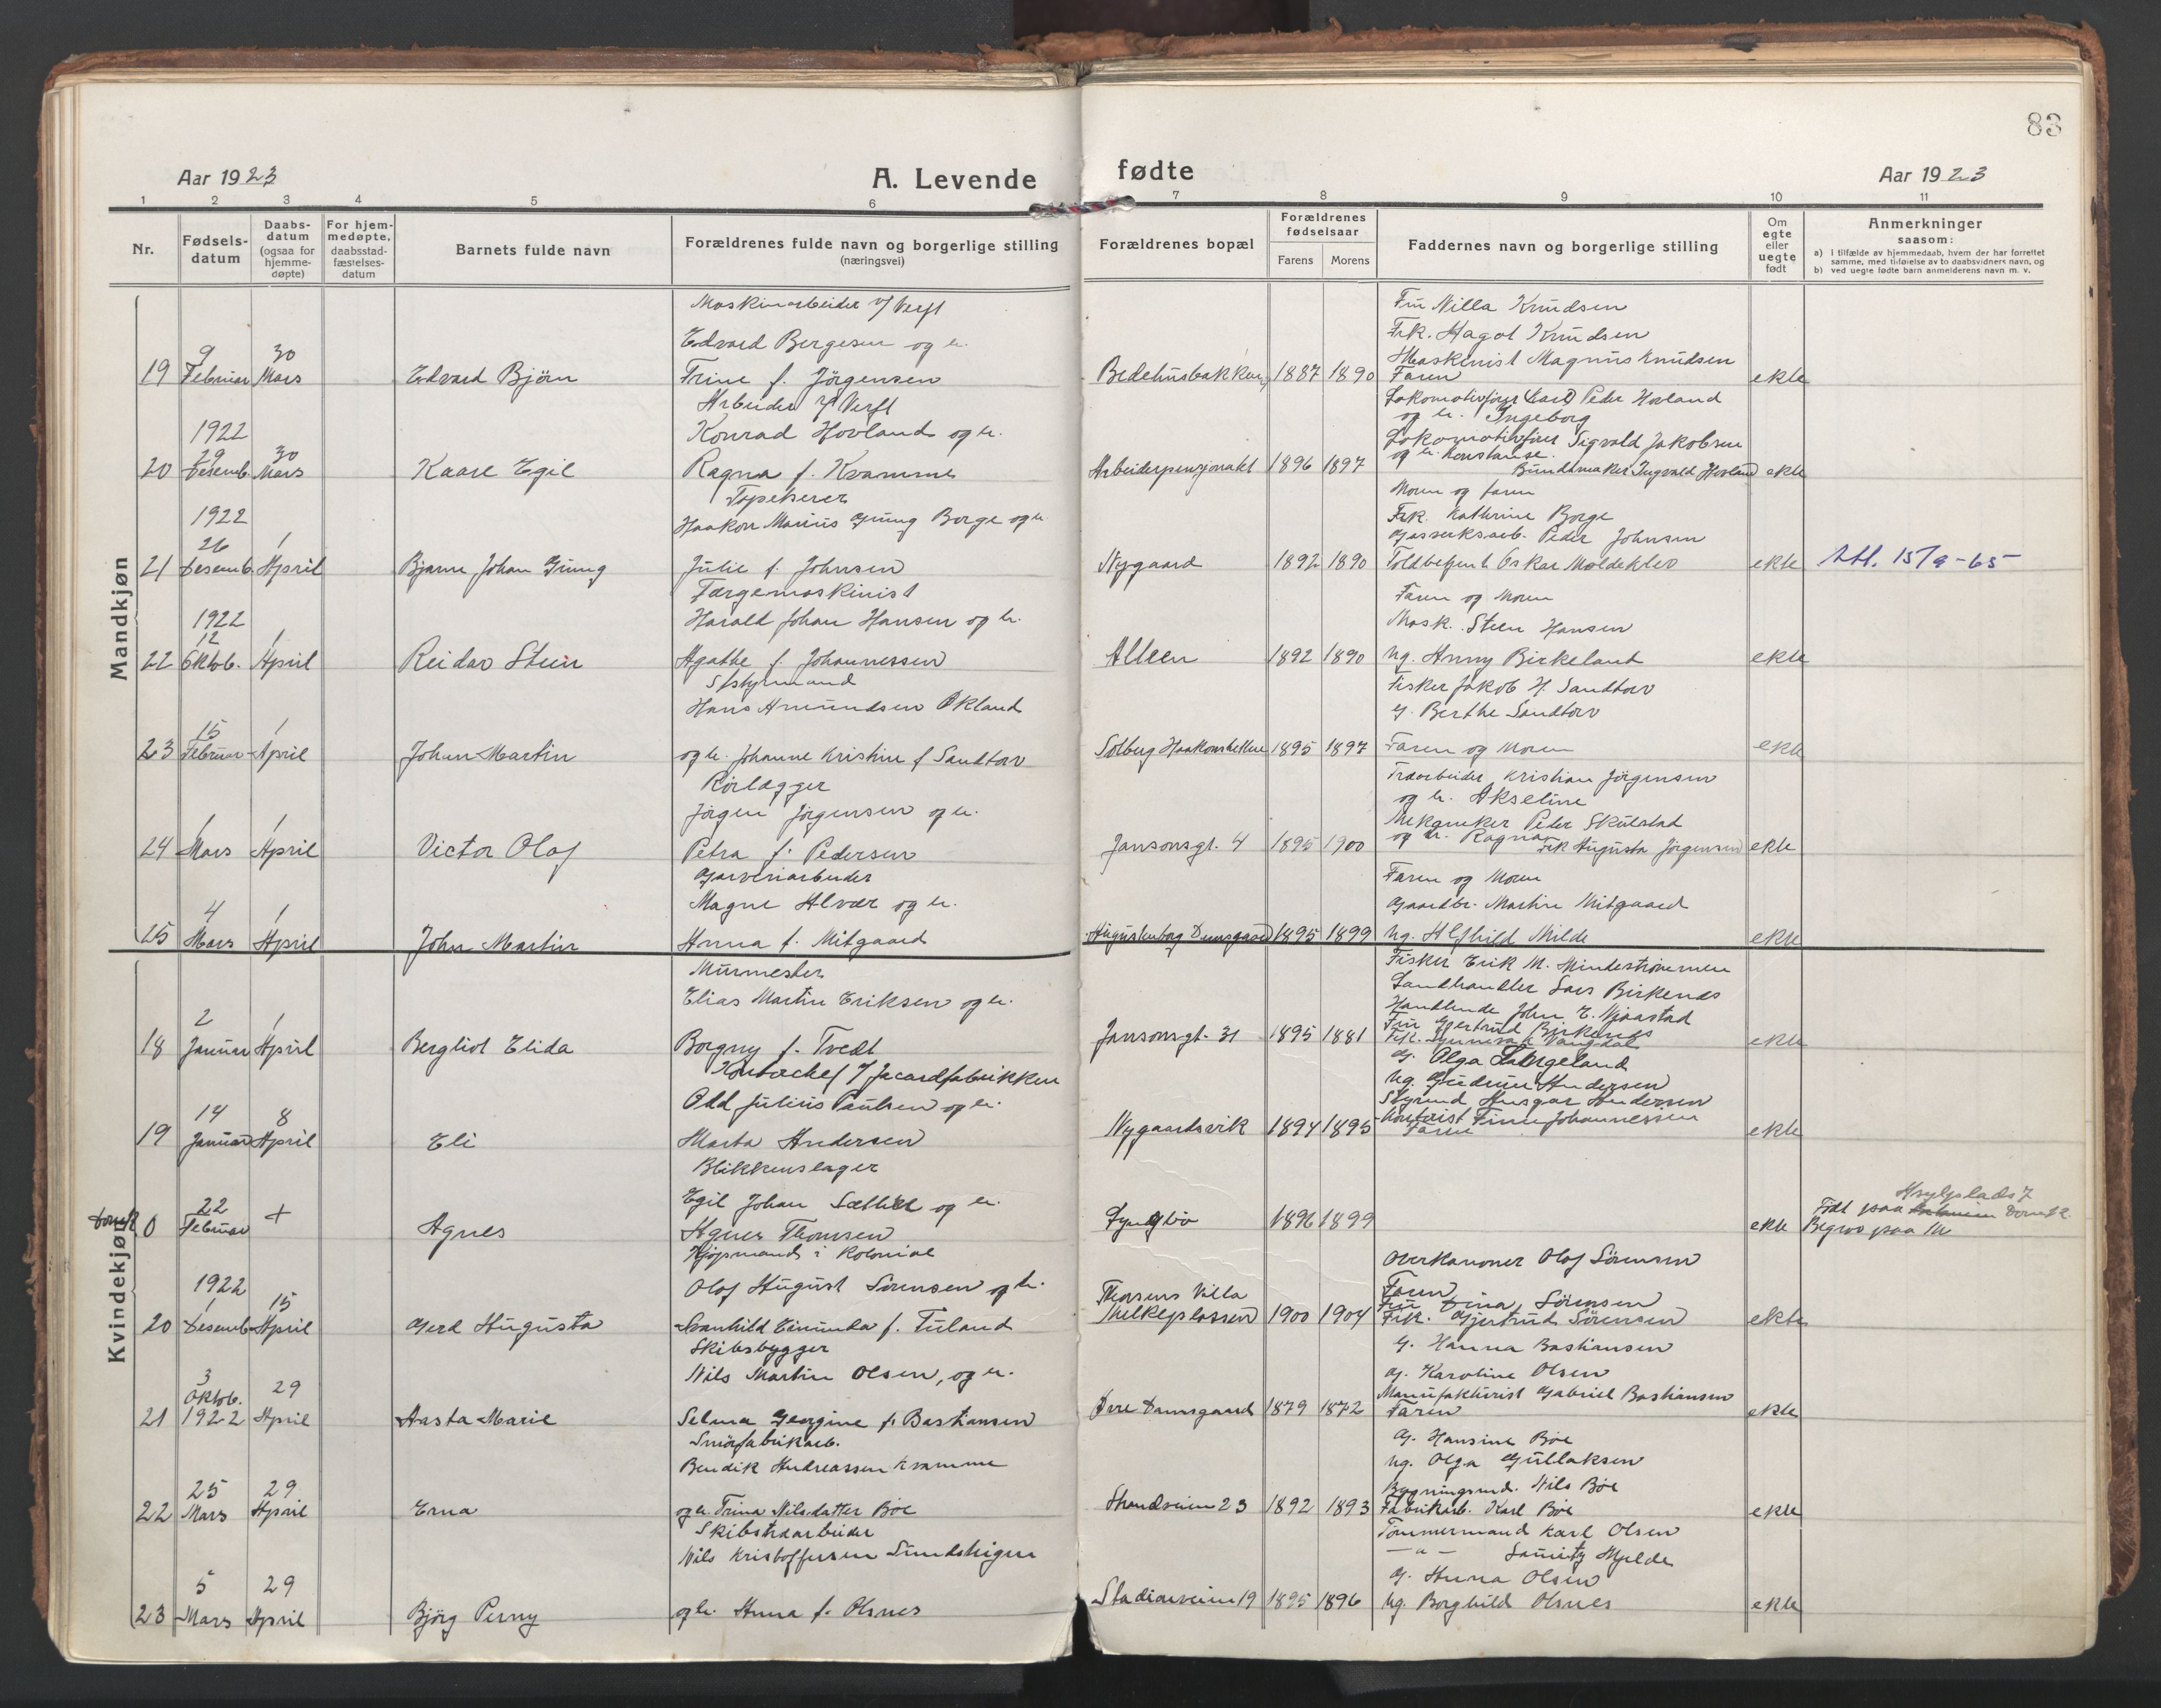 83
Aar 1923
A. Levende fødte
Aar 1923
1 2 3 4 5 6 7 8 9 10 11
Nr.
Fødsels-
datum
Daabs-
datum
(ogsaa for
hjemme-
døpte)
For hjem-
medøpte,
daabsstad-
fæstelses-
datum
Barnets fulde navn
Forældrenes fulde navn og borgerlige stilling
(næringsvei)
Forældrenes bopæl
Forældrenes
fødselsaar
Farens Morens
Faddernes navn og borgerlige stilling
Om
egte
eller
uegte
født
Anmerkninger
saasom:
a) i tilfælde av hjemmedaab, hvem der har forrettet
samme, med tilføielse av to daabsvidners navn, og
b) ved uegte fødte barn anmelderens navn m. v.
Mandkjøn
19
9
Februar
30
Mars
Edvard Björn
Maskinarbeider v/ Verft
Edvard Bergesen og h.
Trine f. Jörgensen
Bedehusbakken
1887 1890
Fru Nilla Knudsen
Frk. Hagot Knudsen
Maskinist Magnus Knudsen
Faren
ekte
20
1922
29
Desemb.
30
Mars
Kaare Egil
Arbeider v/ Verft
Konrad Hovland og h.
Ragna f. Kvamme
Arbeiderpensjonatet
1896 1897
Peder Hovland
og h. Ingeborg
Lokomotivfører Sigvald Jakobsen
og h. Konstanse.
Bundtmaker Ingvald Hovland
ekte
21
1922
26
Desemb.
1
April
Bjarne Johan Gung
Tapetserer
Haakon Marius Gung Borge og h.
Julie f. Johnsen
Nygaard
1892 1890
Moren og faren
Frk. Kathrine Borge
Gassverksarb. Peder Johnsen
Toldbetjent Oskar Moldeklev
ekte
Att. 15/9-65
22
1922
12
Oktob.
1
April
Reidar Stein
Færgemaskinist
Harald Johan Hansen og h.
Agathe f. Johannessen
Alleen
1892 1890
Faren og Moren
Mask. Steen Hansen
Ug. Anny Birkeland
ekte
23
15
Februar
1
April
Johan Martin
Styrmand
Hans Amundsen Økland
og h. Johanne Kristine f Sandtorv
Solberg Haakonshellen
1895 1897
Fisker Jakob H. Sandtorv
G. Berthe Sandtorv
Faren og Moren
ekte
24
1
Mars
1
April
Victor Olaf
Rörlægger
Jörgen Jörgensen og h.
Petra f. Pedersen
Jansonsgt. 4
1895 1900
Træarbeider Kristian Jörgensen
og h. Akseline
Mekaniker Peder Skulstad
og h. Ragna
Frk Augusta Jörgensen
ekte
25
4
Mars
1
April
John Martin
Garveriarbeider
Magne Alvær og h.
Anna f. Mitgaard
Augustenborg Damsgaard
1895 1899
Faren og Moren
Gaardbr. Martin Mitgaard
Ug. Alfhild Milde
ekte
Kvindekjøn
18
2
Januar
1
April
Bergliot Elida
Murmester
Elias Martin Eriksen og h.
Borgny f. Tvedt
Jansonsgt. 31
1895 1881
Fisker Erik M.
Landhandler Lars Birkenes
Handlende John E. Njaastad
Fru Gjertrud Birkenes
ekte
19
14
Januar
8
April
Eli
Kontorchef v/ Jacardfabrikken
Odd Julius Paulsen og h.
Marta Andersen
Nygaardsvik
1894 1895
G. Olga
Ug. Gudrun Andersen
Styrmd Ansgar Andersen
Kontorist Finn Johannessen
Faren
ekte
0
22
Februar
+
Agnes
Blikkenslager
Egil Johan Sæther og h.
Agnes Thomsen
Lyngbø
1896 1899
ekte
20
1922
1
Desemb.
15
April
Gerd Augusta
Kjöpmand i Kolonial
Olaf August Sörensen og h.
Svanhild f. Tuland
Thorsens Villa
Melkeplassen
1900 1904
Overkanoner Olaf Sörensen
Faren
Fru Dina Sörensen
Frk. Gjertrud Sörensen
ekte
21
3
Oktob.
1922
29
April
Aasta Marie
Skibsbygger
Nils Martin Olsen, og h.
Selma Georgine f. Bastiansen
Øvre Damsgaard
1879 1872
G. Hanna Bastiansen
G. Karoline Olsen
Manufakturist Gabriel Bastiansen
Faren
ekte
22
25
Mars
29
April
Erna
Smörfabrikarb.
Bendik Andreassen Kvamme
og h. Trina Nilsdatter Böe
Strandveien 23
1892 1893
G. Hansine Böe
Ug. Olga Gullaksen
Bygningsmd. Nils Böe
Fabrikarb. Karl Böe
ekte
23
5
Mars
29
April
Björg Perny
Skibstræarbeider
Nils Kristoffersen
og h. Anna f. Olsnes
Stadionveien 19
1895 1896
Tömmermand Karl Olsen
— " — Hjelde
G. Anna Olsen
Ug. Borghild Olsnes
ekte